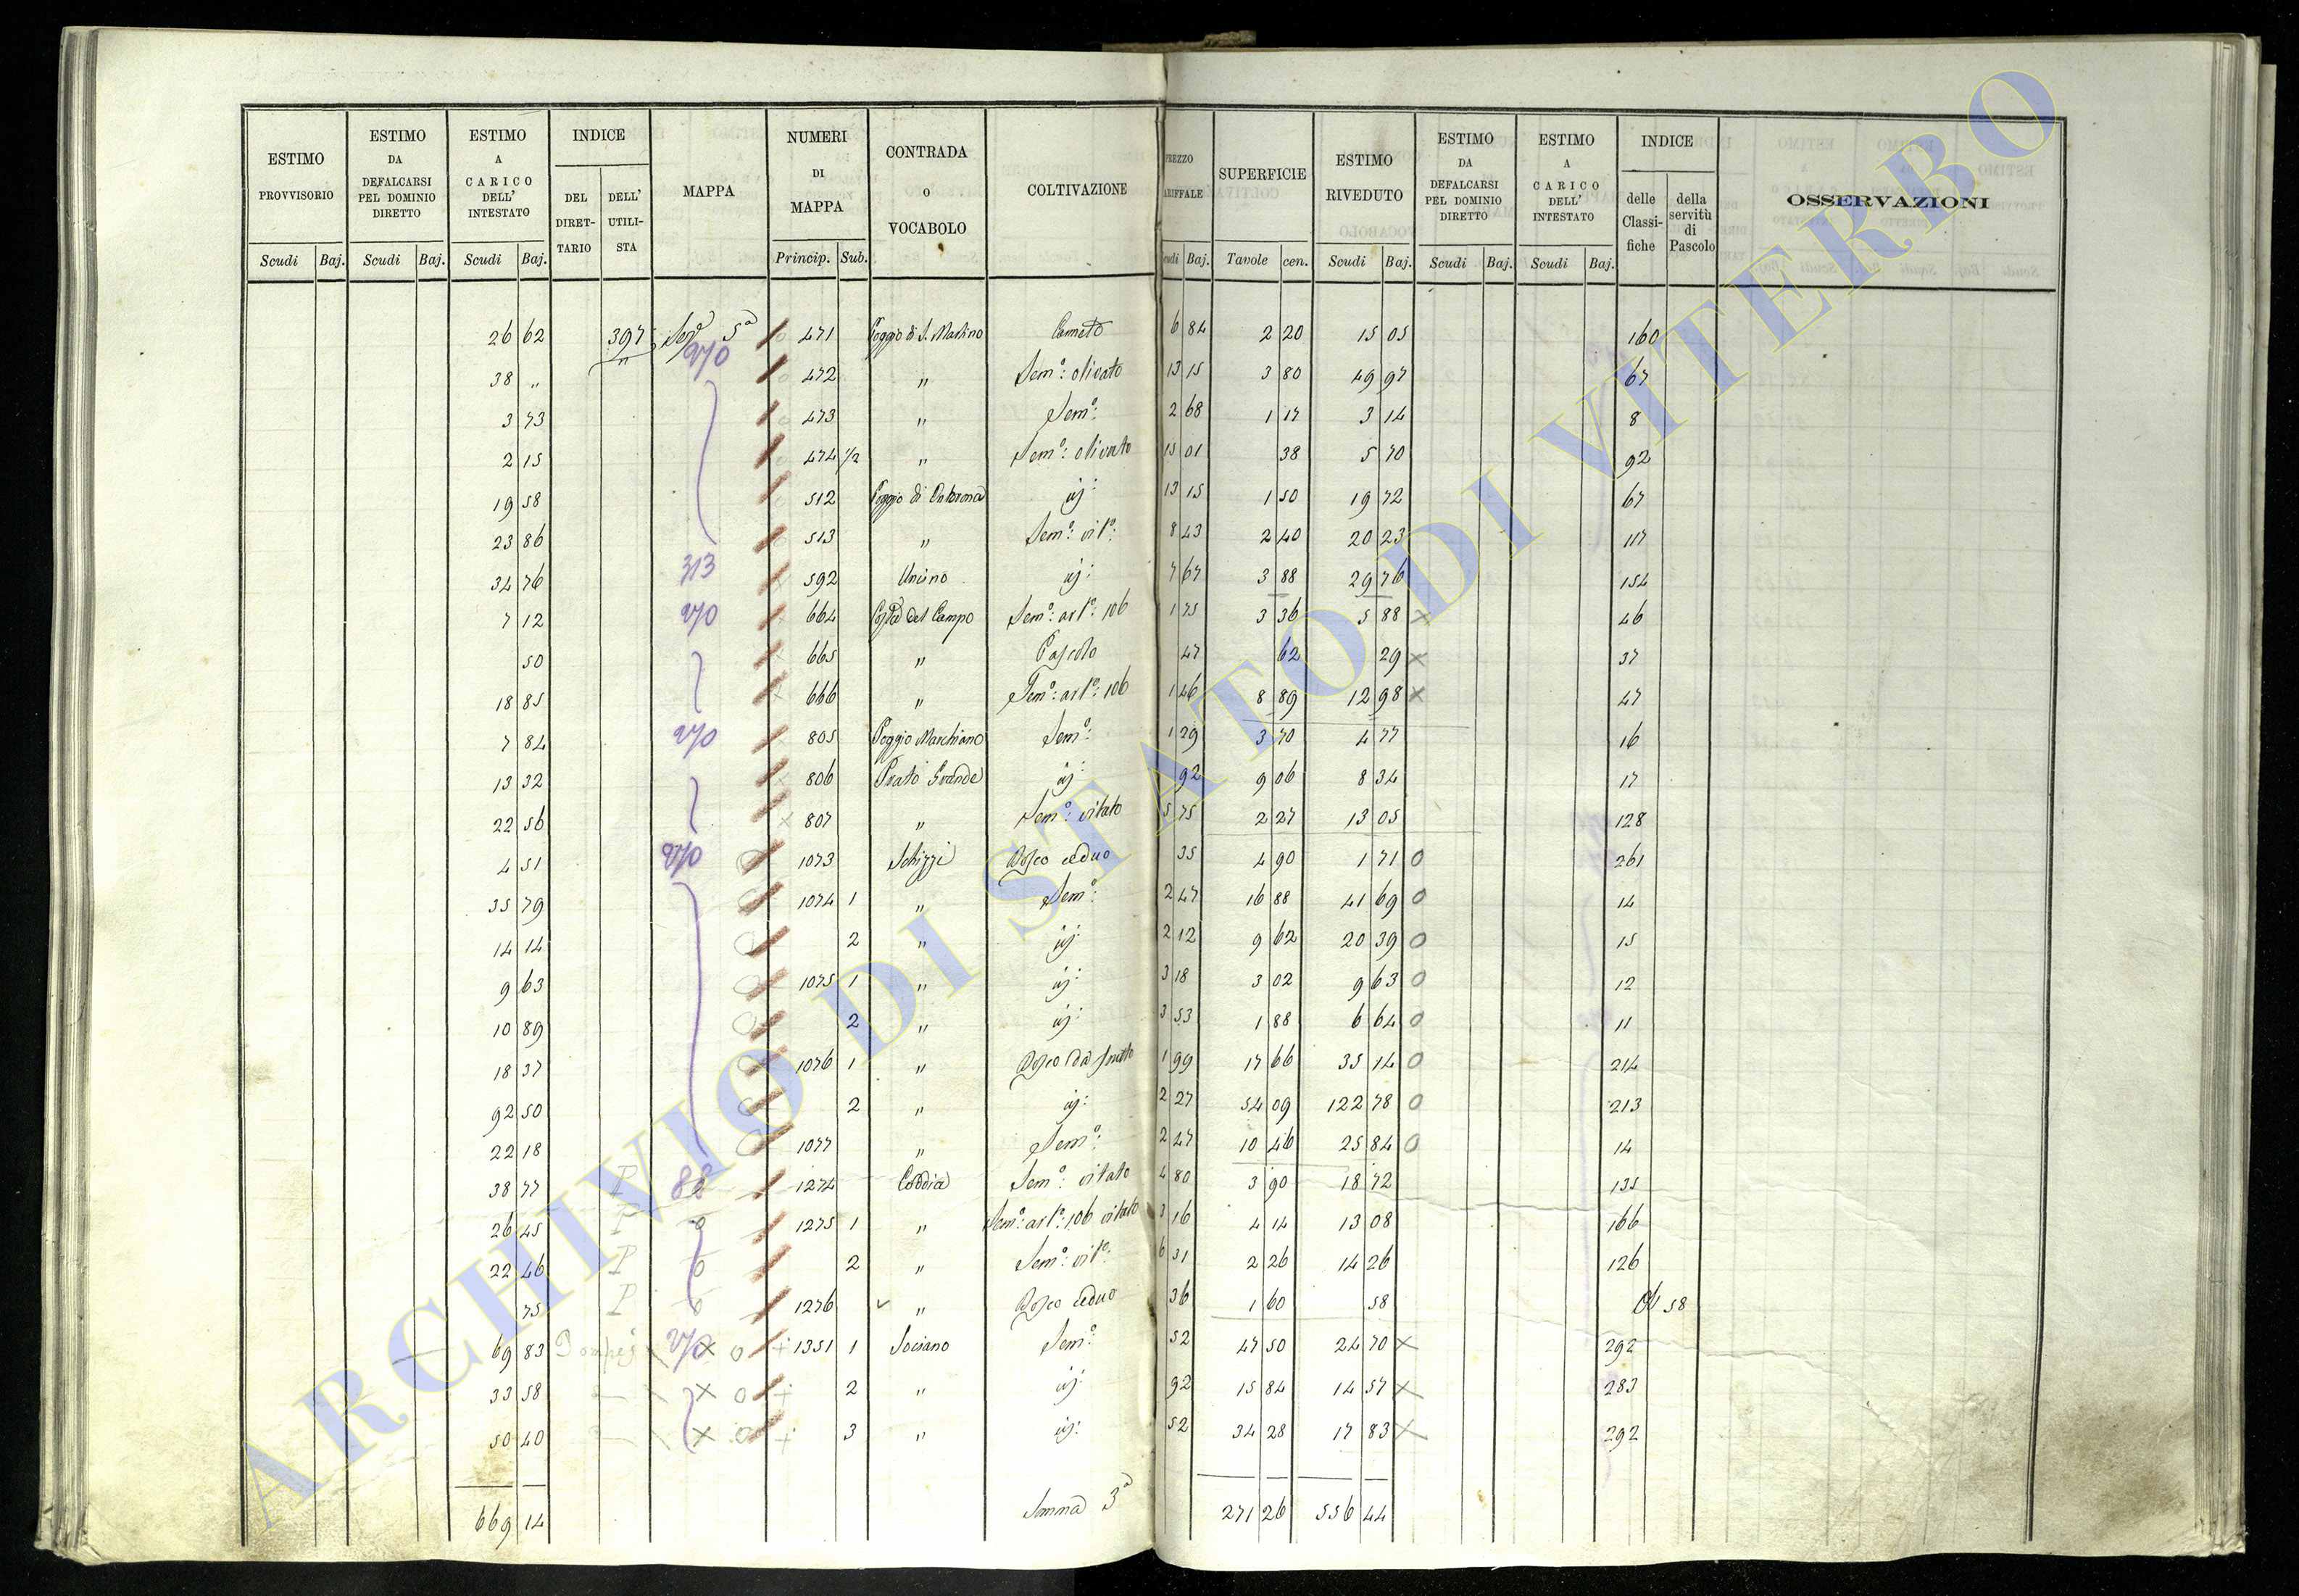 ESTIMO PROVVISORIO | ESTIMO DA DEFALCARSI PEL DOMINIO DIRETTO | ESTIMO A CARICO DELL' INTESTATO | INDICE | MAPPA | NUMERI DI MAPPA | CONTRADA O VOCABOLO | COLTIVAZIONE | PREZZO TARIFFALE | SUPERFICIE | ESTIMO RIVEDUTO | ESTIMO DA DEFALCARSI PEL DOMINIO DIRETTO | ESTIMO A CARICO DELL' INTESTATO | INDICE | OSSERVAZIONI
DEL DIRET-TARIO | DELL' UTILI-STA | delle Classi-fiche | della servitù di Pascolo
Scudi Baj. | Scudi Baj. | Scudi Baj. | Princip. Sub. | Scudi Baj. | Tavole cen. | Scudi Baj. | Scudi Baj. | Scudi Baj.
26 62 | 397 | 5ª | 471 | Poggio di S. Martino | Canneto | 6 84 | 2 20 | 15 05 | 160
270
38 " | 472 | " | Sem.º: olivato | 13 15 | 3 80 | 49 97 | 67
3 73 | 473 | " | Sem.º: | 2 68 | 1 17 | 3 14 | 8
2 15 | 474 1/2 | " | Sem.º: olivato | 15 01 | 38 | 5 70 | 92
19 58 | 512 | Poggio di | id: | 13 15 | 1 50 | 19 72 | 67
23 86 | 513 | " | Sem.º: vit.º: | 8 43 | 2 40 | 20 23 | 117
34 76 | 313 | 592 | Uncino | id: | 7 67 | 3 88 | 29 76 | 154
7 12 | 270 | 664 | Costa del Campo | Sem.º: art.º: 106 | 1 75 | 3 36 | 5 88 × | 46
50 | 665 | " | Pascolo | 47 | 62 | 29 × | 37
18 85 | 666 | " | Sem.º: art.º: 106 | 1 46 | 8 89 | 12 98 × | 47
7 84 | 270 | 805 | Poggio Marchiano | Sem.º: | 1 29 | 3 70 | 4 77 | 16
13 32 | 806 | Prato Grande | id: | 92 | 9 06 | 8 34 | 17
22 56 | 807 | " | Sem.º: vitato | 5 75 | 2 27 | 13 05 | 128
4 51 | 270 | 1073 | Schizzi | Bosco ceduo | 35 | 4 90 | 1 71 0 | 261
35 79 | 1074 1 | " | Sem.º: | 2 47 | 16 88 | 41 69 0 | 14
14 14 | 2 | " | id: | 2 12 | 9 62 | 20 39 0 | 15
9 63 | 1075 1 | " | id: | 3 18 | 3 02 | 9 63 0 | 12
10 89 | 2 | " | id: | 3 53 | 1 88 | 6 64 0 | 11
18 37 | 1076 1 | " | Bosco da frutto | 1 99 | 17 66 | 35 14 0 | 214
92 50 | 2 | " | id: | 2 27 | 54 09 | 122 78 0 | 213
22 18 | 1077 | " | Sem.º: | 2 47 | 10 46 | 25 84 0 | 14
38 77 | P | 88 | 1274 | Coddia | Sem.º: vitato | 4 80 | 3 90 | 18 72 | 135
26 45 | P | 1275 1 | " | Sem.º: art.º: 106 vitato | 3 16 | 4 14 | 13 08 | 166
22 46 | P | 2 | " | Sem.º: vit.º: | 6 31 | 2 26 | 14 26 | 126
75 | P | 1276 | " | Bosco ceduo | 36 | 1 60 | 58 | 58
69 83 | 270 × 0 | 1351 1 | Sociano | Sem.º: | 52 | 47 50 | 24 70 × | 292
33 58 | × 0 | 2 | " | id: | 92 | 15 84 | 14 57 × | 283
50 40 | × 0 | 3 | " | id: | 52 | 34 28 | 17 83 × | 292
669 14 | Somma 3ª | 271 26 | 556 44
ARCHIVIO DI STATO DI VITERBO